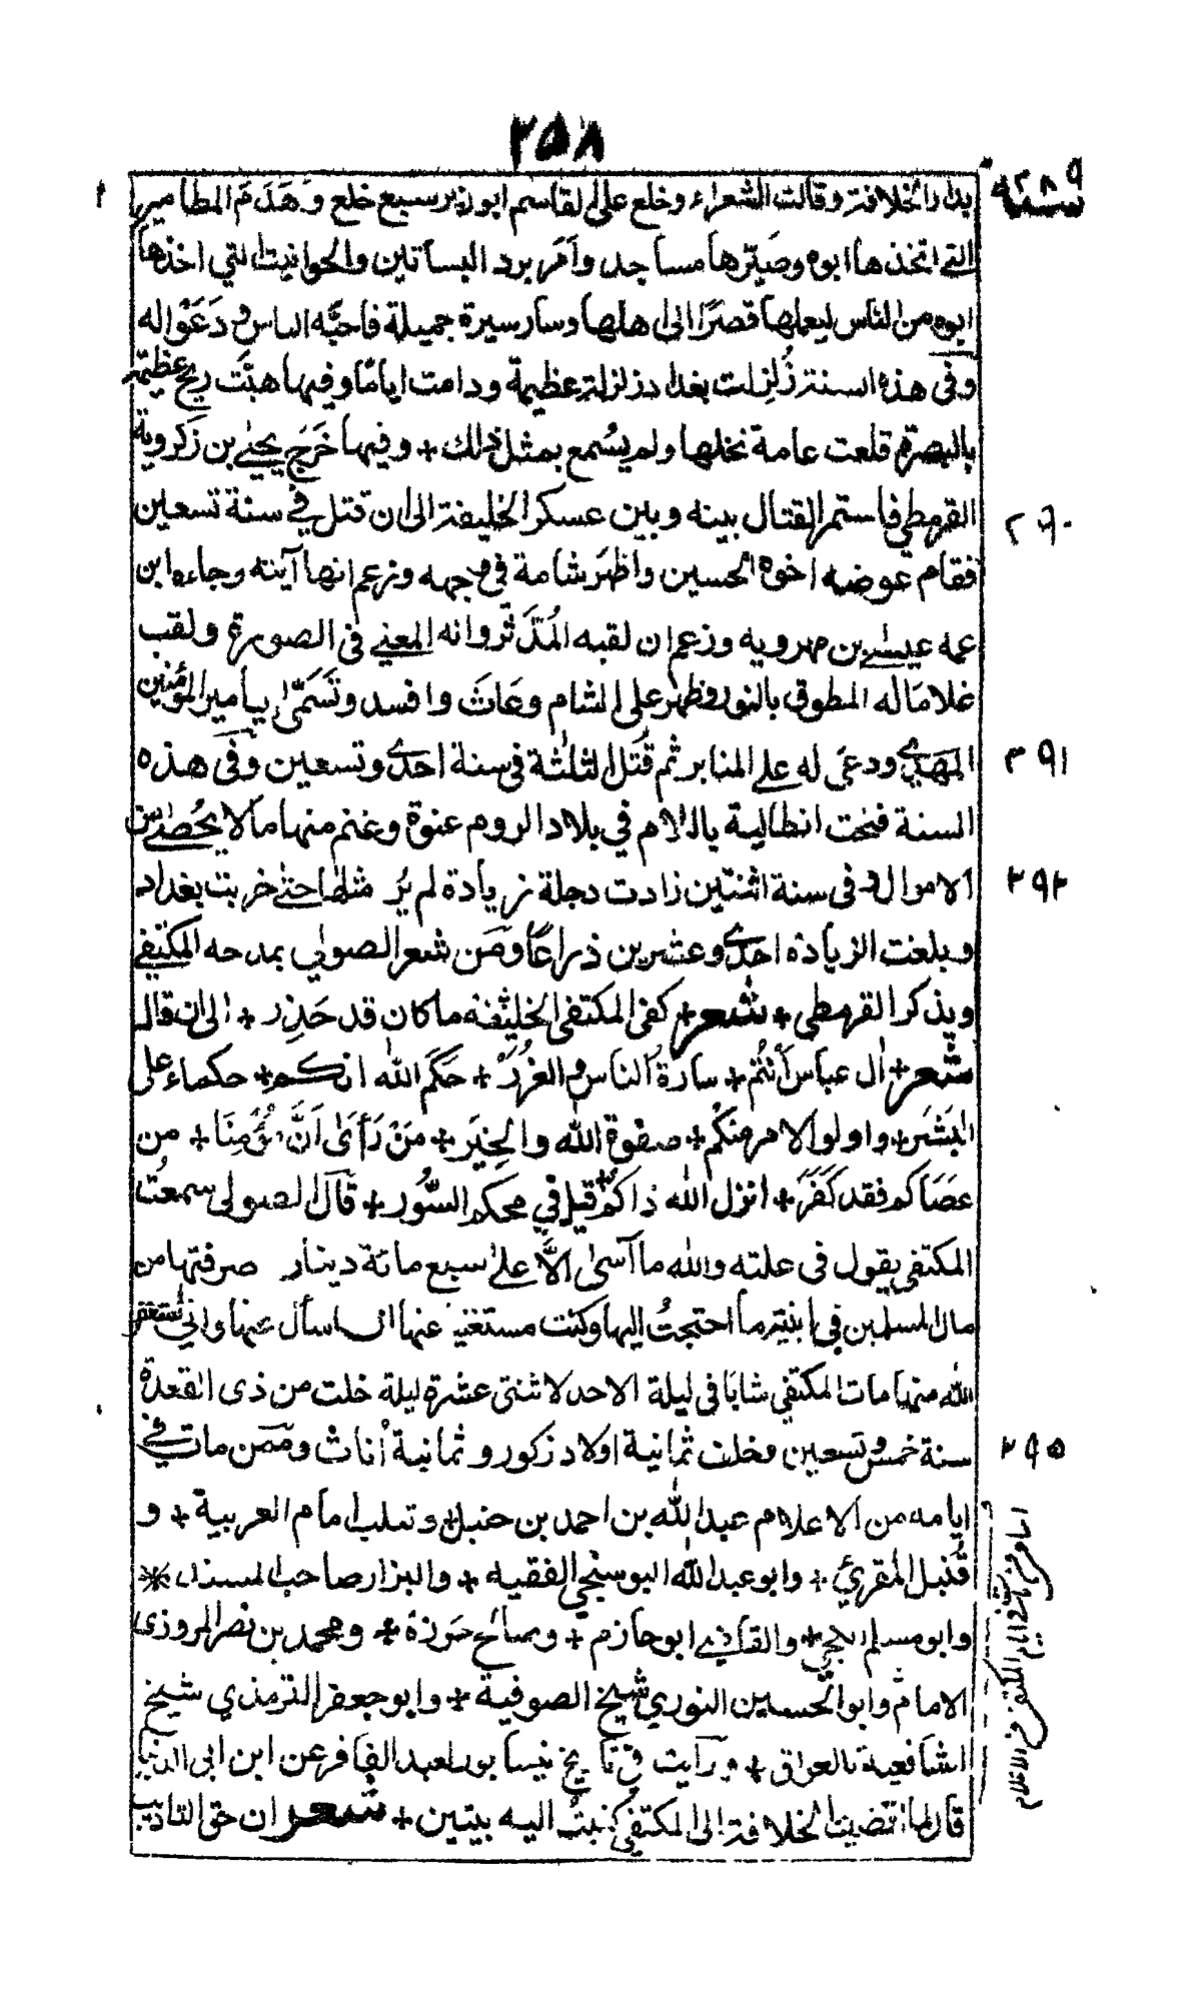 ٢٥٨
سنة ٢٨٩
بدار الخلافة وقالت الشعراء وخلع على القاسم ابو زير سبع خلع وَهَدَمَ المطامير
التى اتخذها ابوه وصيّرها مساجد وأمَرَ برد البساتين والحوانيت التي اخذها
ابوه من الناس ليعملها قصرًا الى اهلها وسار سيرة جميلة فاحبَّه الناس و دَعَوْا له
وفى هذه السنة زُلزلت بغداد زلزلة عظيمة ودامت ايامًا وفيها هبَّت ريح عظيمة
بالبصرة قلعت عامة نخلها ولم يسُمع بمثل ذلك + وفيها خَرَجَ يحيى بن زكرويه
القرمطي فاستمر القتال بينه وبين عسكر الخليفة الى ان قتل في سنة تسعين
٢٩٠
فقام عوضه اخوه الحسين واظهَر شامة فى وجهه وزعم انها آيته وجاءه ابن
عمه عيسى بن مهرويه وزعم ان لقبه المُدَّثر وانه المعني فى الصورة ولقب
غلامًا له المطوق بالنور وظهر على الشام وعَاثَ وافسد وتَسَمّى بامير المؤمنين
المهدي ودعى له على المنابر ثم قُتل الثلثة فى سنة احدى وتسعين وفى هذه
٢٩١
السنة فتحت انطالية باللام في بلاد الروم عنوة وغنم منها ما لا يحُصى من
الاموال وفى سنة اثنتين زادت دجلة زيادة لم يُر مثلها حتى خربت بغداد
٢٩٢
وبلغت الزيادة احدى وعشرين ذراعًا ومن شعر الصولي يمدحه المكتفى
ويذكر القرمطي + شعر + كفى المكتفى الخليفة ما كان قد حَذِر + الى ان قال
شعر + ال عباس أنتُم + سادةُ الناس والغُرَرْ + حَكَمَ الله انكم + حكماء على
البَشَر + واولو الامر منكم + صفوة الله والخِيَر + مَنْ رَأى اَنَّ مُؤمِنًا + من
عصَاكم فقد كَفَرَ + انزل الله ذاكم + قبل في محكم السُّوَر + قال الصولى سمعتُ
المكتفى يقول فى علته والله ما آسَى الاَّ على سبع مائة دينار صرفتها من
مال المسلمين فى ابنية ما احتجتُ اليها وكنت مستغنيا عنها اسأل عنها وانى استغفر
الله منها مات المكتفي شابا فى ليلة الاحد لاثنتى عشرة ليلة خلت من ذى القعدة
سنة خمس وتسعين وخلف ثمانية اولاد ذكور وثمانية اُناث وممن مات في
٢٩٥
ايامه من الاعلام عبد الله بن احمد بن حنبل + وثعلب امام العربية + و
قُنبل المقرئ + وابو عبد الله البوسنجي الفقيه + والبزار صاحب المسند *
وابو مسلم الكجي + والقاضي ابو حازم + وصالح جَوزة + ومحمد بن نصر المروزى
الامام وابو الحسين النوري شيخ الصوفية + وابو جعفر الترمذي شيخ
الشافعية بالعراق + ورأيت فى تاريخ نيسابور لعبد الغافر عن ابن ابى الدنيا
قال لما افضيت الخلافة الى المكتفي كتبتُ اليه بيتين + شعر ان حق التاديب
اسامى من مات فى ايام المكتفى من الاعلام